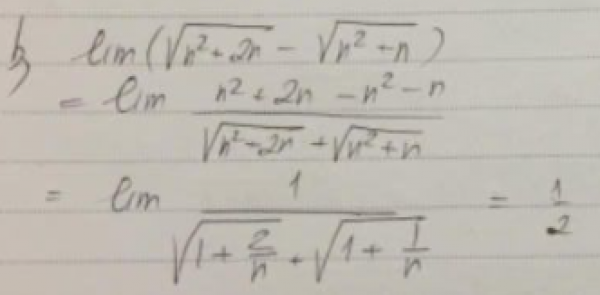 b) lim(√(n² + 2n) - √(n² - n))
= lim (n² + 2n - n² - n)/(√(n² - 2n) + √(n² + n))
= lim 1/(√(1 + 2/n) + √(1 + 1/n)) = 1/2